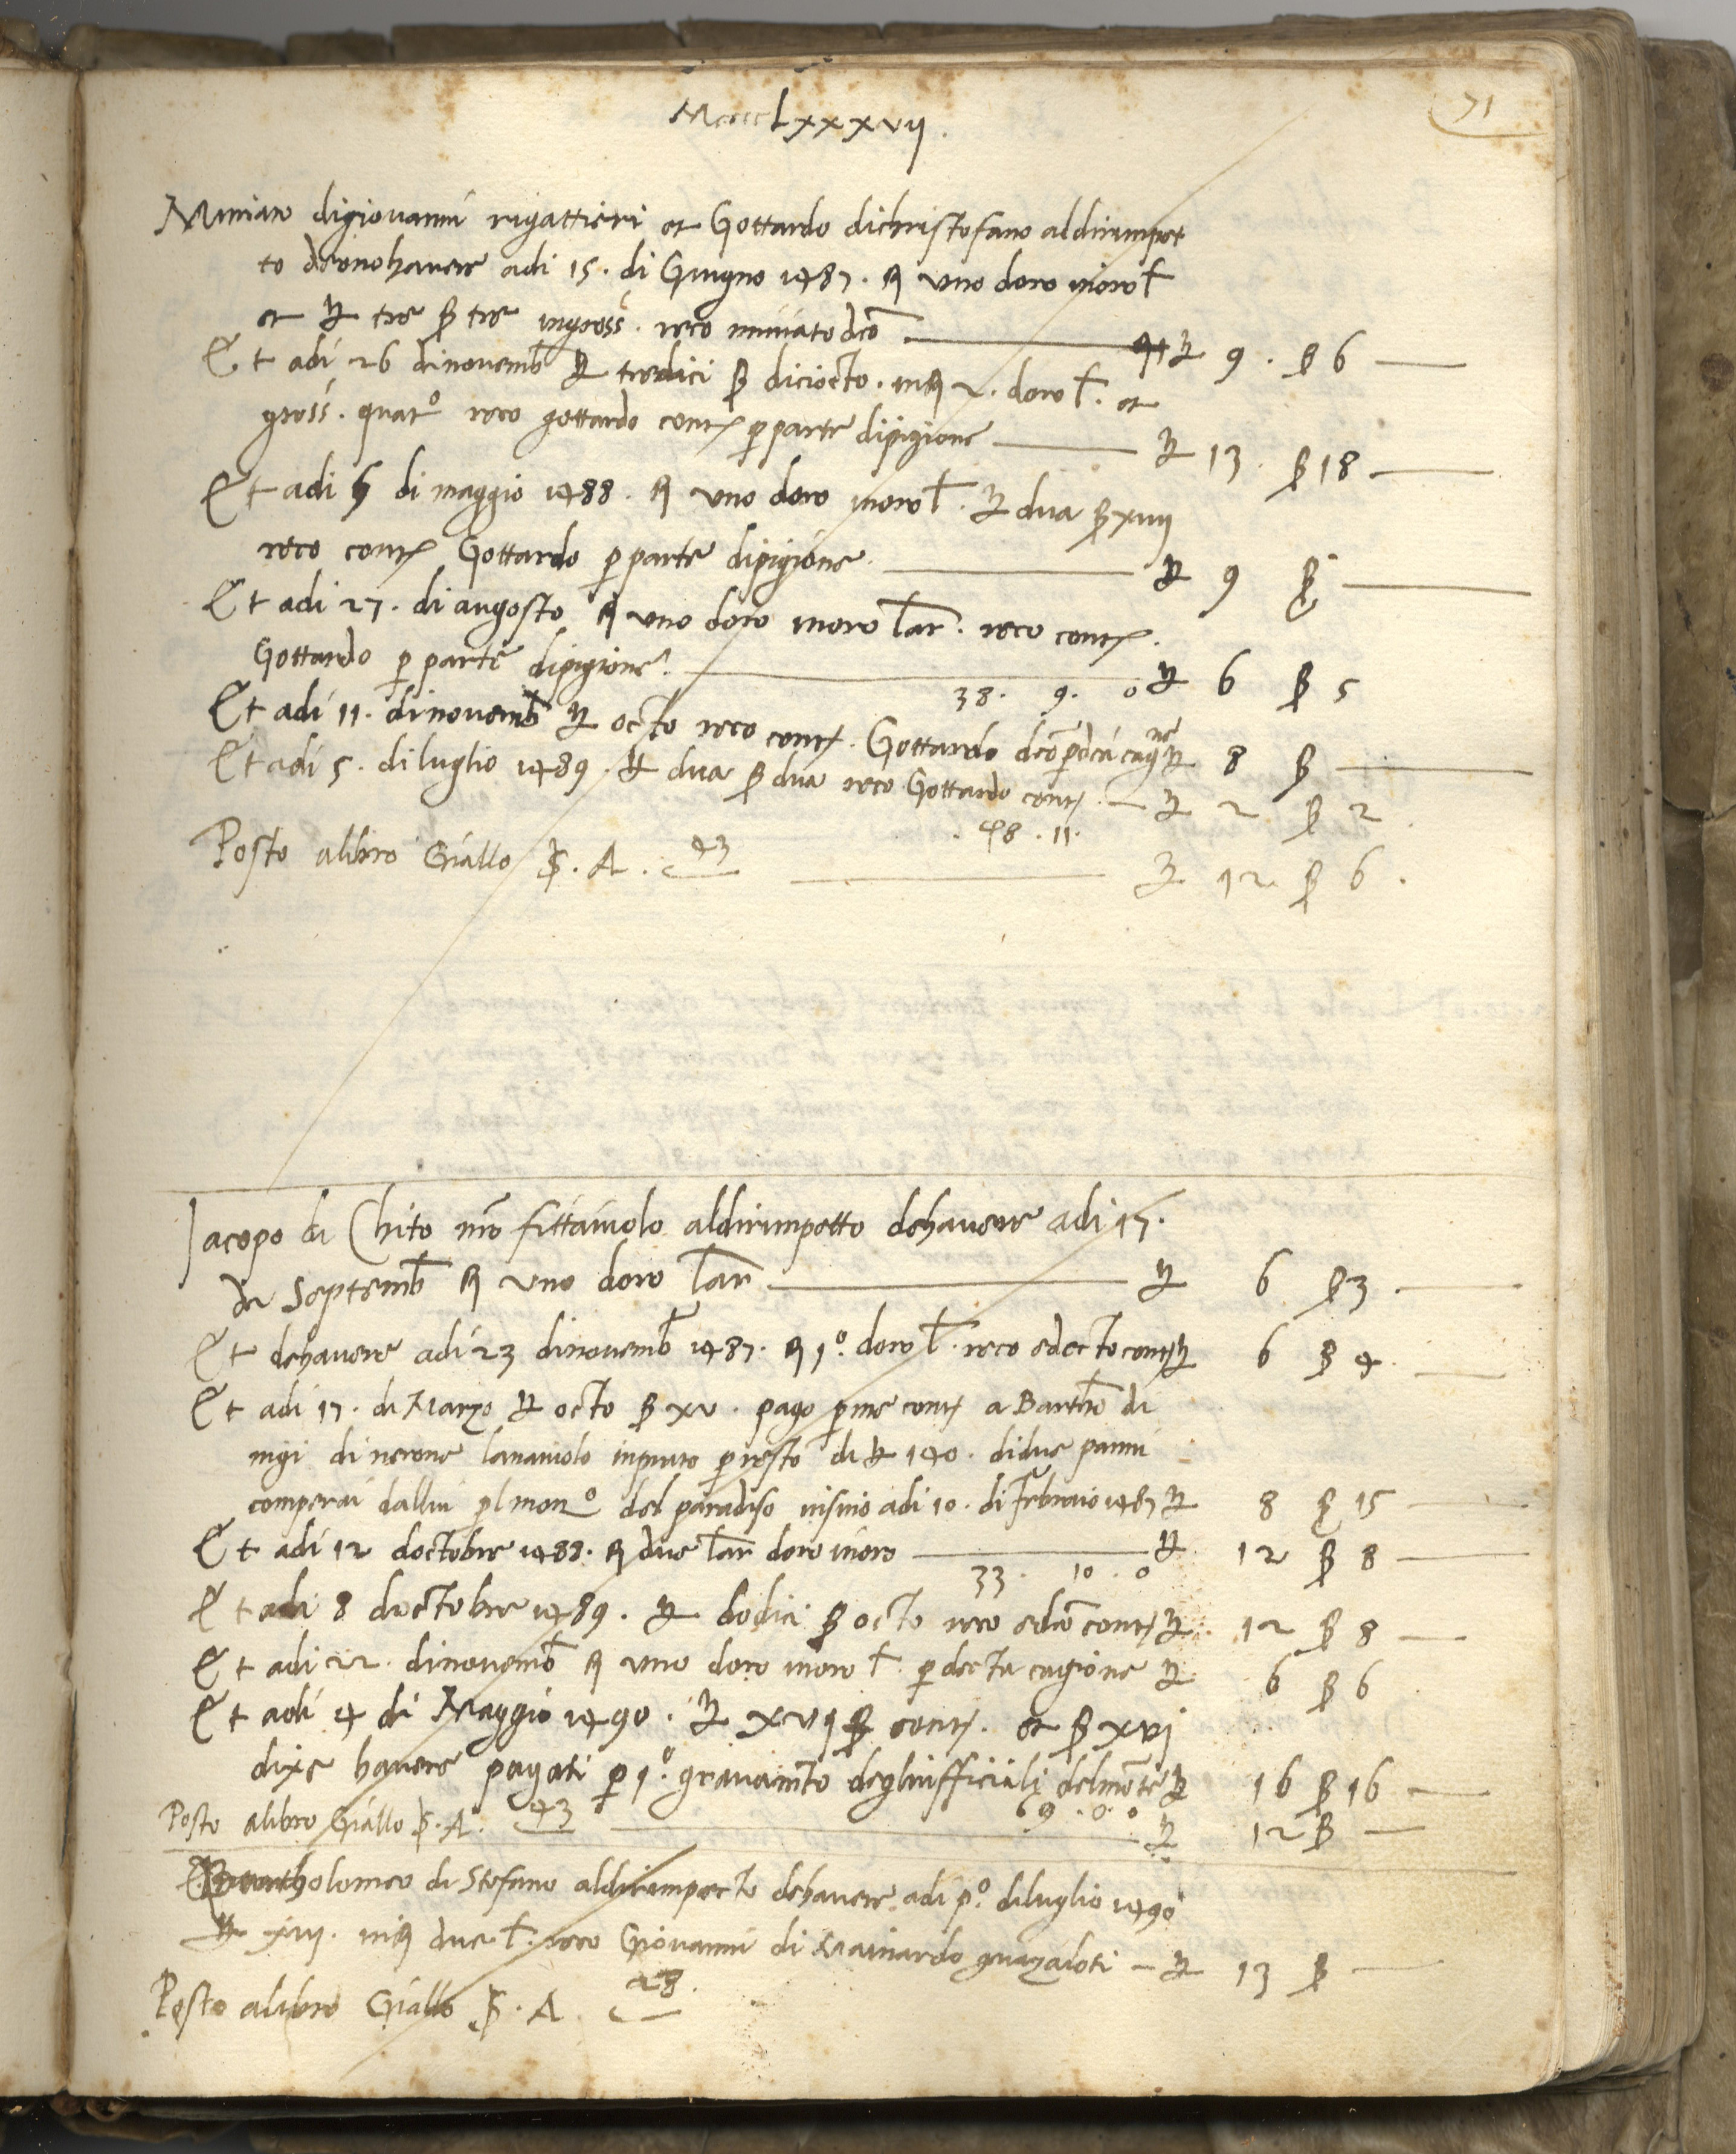 71
MccccLxxxvij.
Miniato digiovanni rigattieri et Gottardo dichristofano aldirimpet
to deonohavere adi 15. di Giugno 1487. ƒ uno doro inoro l.
et ₶ tre ß tre ingross. reco miniato dco ₶ 9. ß 6
Et adi 26 dinovemb ₶ tredici ß diciocto. in ƒ 2. doro l. et
gross. quatº reco gottardo cont p parte dipigione ₶ 13. ß 18
Et adi di maggio 1488. ƒ uno doro inoro l. ₶ dua ß xviij
reco cont Gottardo p parte dipigione ₶ 9 ß
Et adi 27. di augosto ƒ uno doro inoro lar. reco cont.
Gottardo p parte dipigione. 38. 9. 0 ₶ 6 ß 5
Et adi 11. dinovemb ₶ octo reco cont. Gottardo dco p dca cagne ₶ 8 ß
Et adi 5. diluglio 1489. ₶ dua ß dua reco Gottardo cont. ₶ 2 ß 2
. 48. 11.
Posto alibro Giallo S. A. 43 ₶ 12 ß 6.
Iacopo di Chito nro fittaiuolo aldirimpetto dehavere adi 17.
de Septemb ƒ uno doro lar ₶ 6 ß 3
Et dehavere adi 23 dinovemb 1487. ƒ 1º. doro l. reco edecto cont ₶ 6 ß 4
Et adi 17. di Marzo ₶ octo ß xv. pago p me cont a Bartho di
nigi di nerone lanaiuolo inprato p resto di ₶ 140. didue panni
comperai dallui pl monº del paradiso insino adi 10. di Febraio 1487 ₶ 8 ß 15
Et adi 12 doctobre 1488. ƒ due lar doro inoro ₶ 12 ß 8
33. 10. 0
Et adi 8 doctobre 1489. ₶ dodici ß octo reco edco cont ₶ 12 ß 8
Et adi 22. dinovemb ƒ uno doro inoro l. p decta cagione ₶ 6 ß 6
Et adi 4 di Maggio 1490. ₶ xvj ß cont. et ß xvj
dixe havere pagati p 1º. gravamto degliufficiali delmonte ₶ 16 ß 16
69. 0. 0
Posto alibro Giallo S. A. 43 ₶ 12 ß
Bartholomeo di Stefano aldirimpecto dehavere adi pº. diluglio 1490
₶ xiij. in ƒ due l. reco Giovanni di Mainardo guazaloti ₶ 13 ß
Posto alibro Giallo S. A. 28